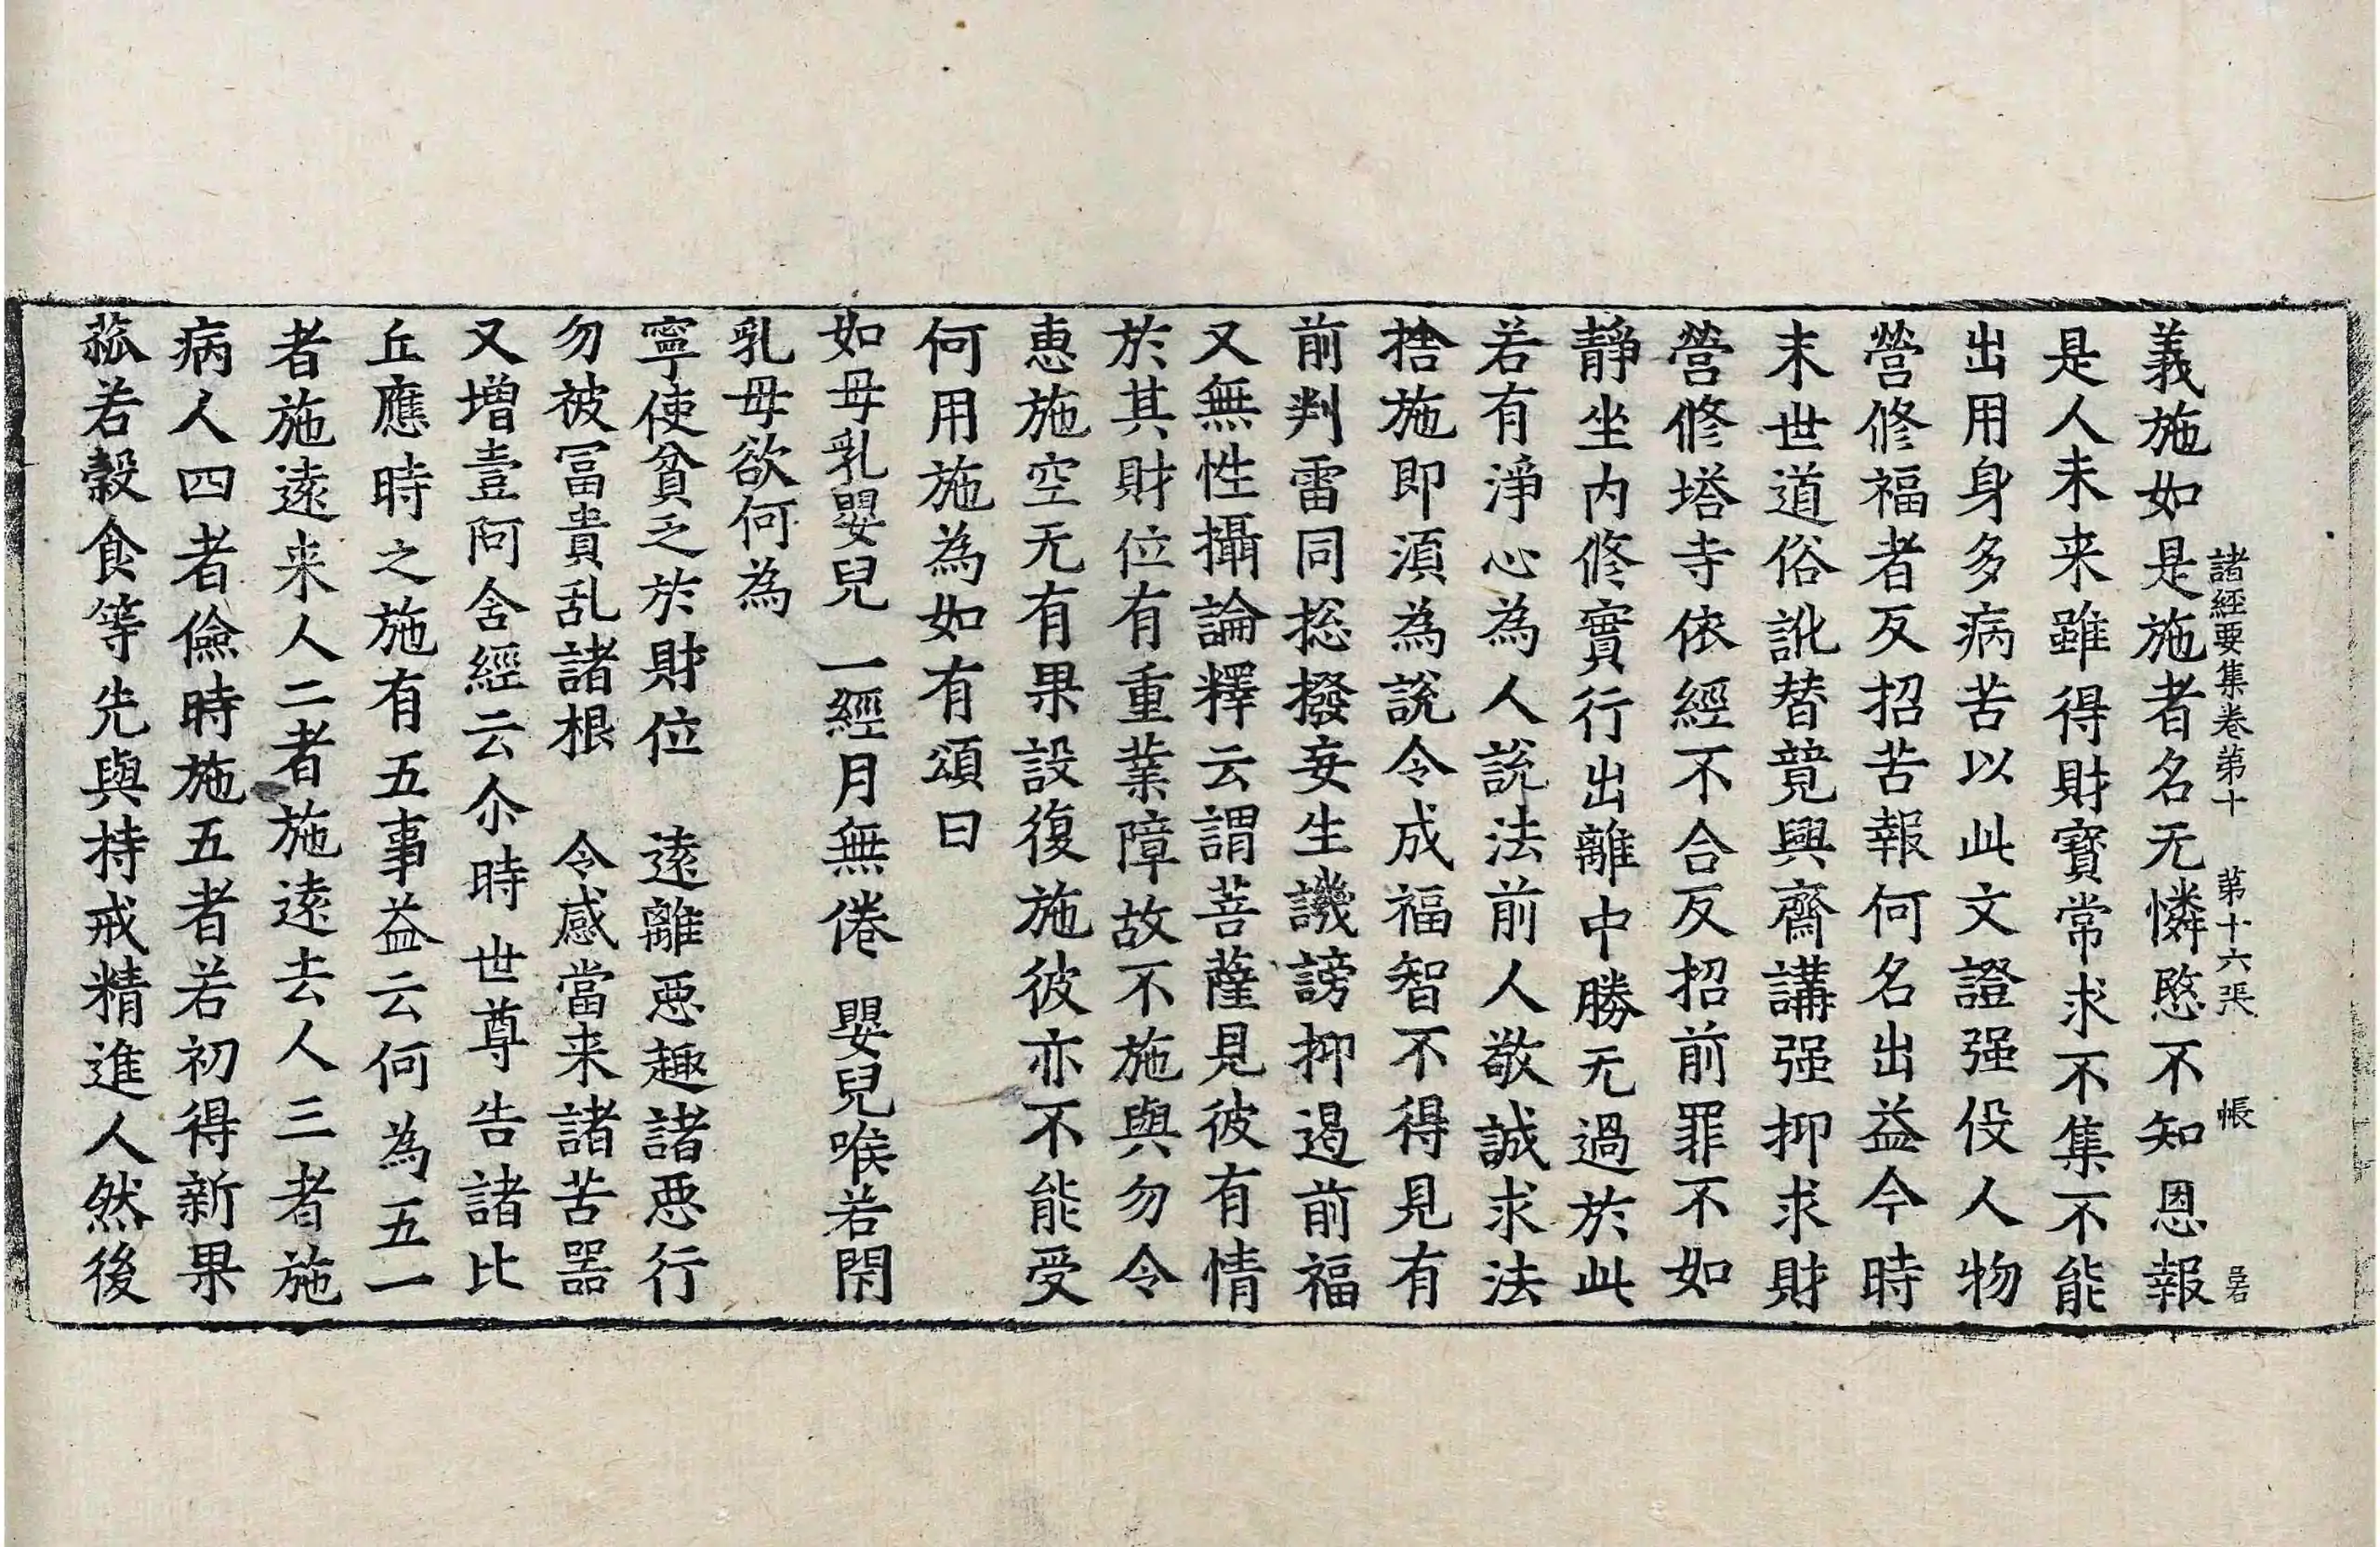 諸經要集卷第十　第十六張　帳
義施如是施者名无憐愍不知恩報
是人未来雖得財寶常求不集不能
出用身多病苦以此文證强伇人物
營修福者反招苦報何名出益今時
末世道俗訛替竟興齋講强抑求財
營修塔寺依經不合反招前罪不如
靜坐内修實行出離中勝无過於此
若有淨心為人說法前人敬誠求法
捨施即湏為說令成福智不得見有
前判雷同捴撥妄生譏謗抑遏前福
又無性攝論釋云謂菩薩見彼有情
於其財位有重業障故不施與勿令
惠施空无有果設復施彼亦不能受
何用施為如有頌曰
如母乳嬰兒　一經月無倦　嬰兒喉若閇
乳母欲何為
寧使貧乏於財位　遠離惡趣諸惡行
勿被冨貴乱諸根　令感當来諸苦器
又增壹阿含經云尒時世尊告諸比
丘應時之施有五事益云何為五一
者施遠来人二者施遠去人三者施
病人四者儉時施五者若初得新果
蓏若穀食等先與持戒精進人然後